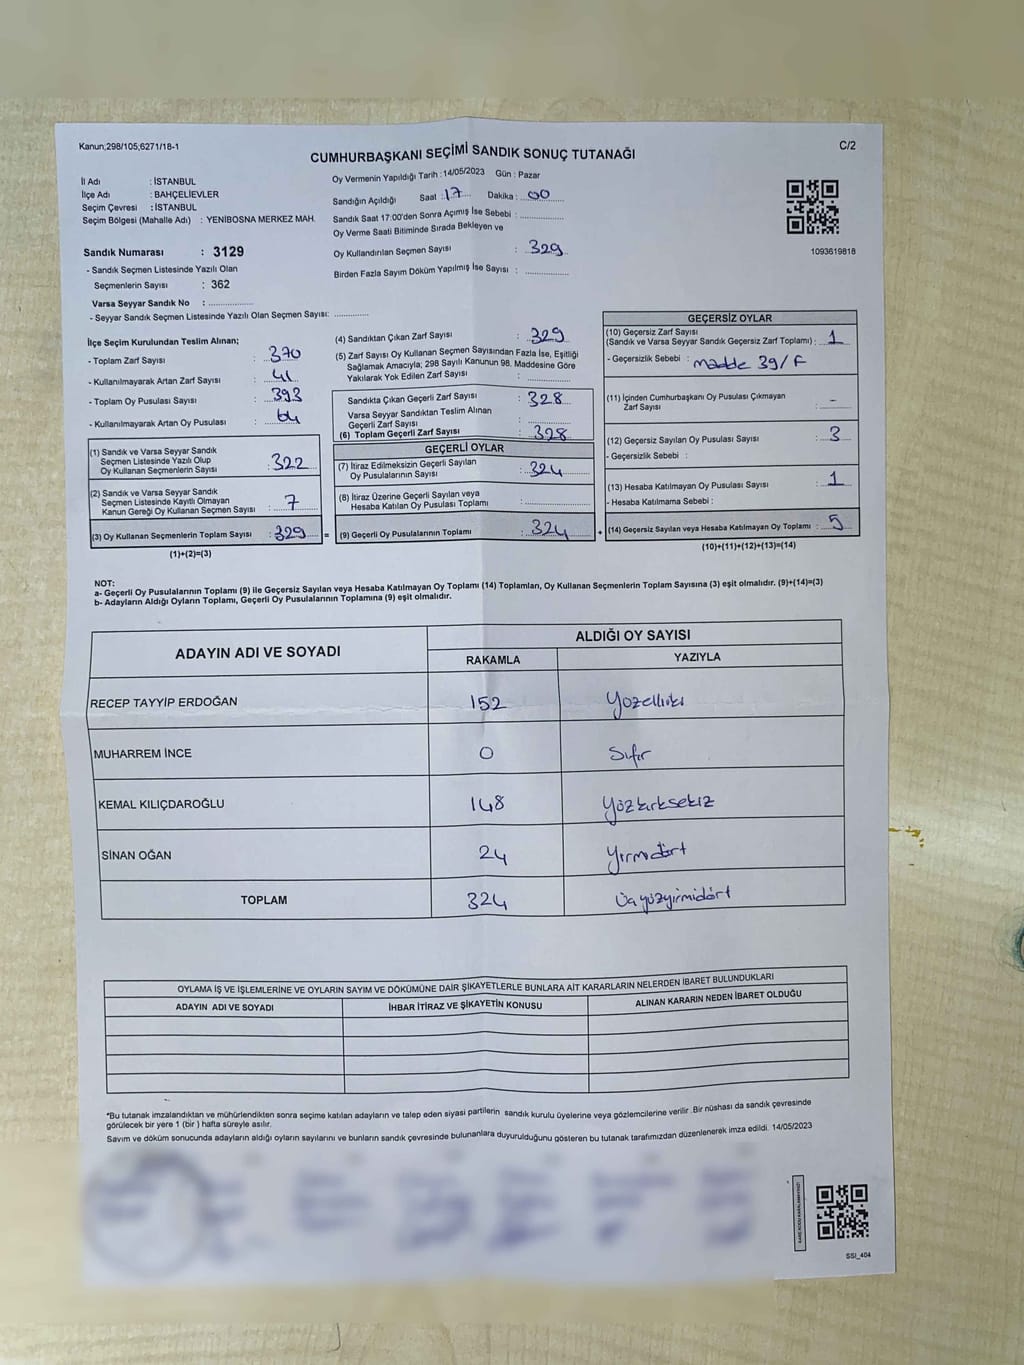 Kanun;298/105;6271/18-1
C/2
CUMHURBAŞKANI SEÇİMİ SANDIK SONUÇ TUTANAĞI
İl Adı : İSTANBUL
İlçe Adı : BAHÇELİEVLER
Seçim Çevresi : İSTANBUL
Seçim Bölgesi (Mahalle Adı) : YENİBOSNA MERKEZ MAH.
Sandık Numarası : 3129
- Sandık Seçmen Listesinde Yazılı Olan
Seçmenlerin Sayısı : 362
Varsa Seyyar Sandık No : ..................
- Seyyar Sandık Seçmen Listesinde Yazılı Olan Seçmen Sayısı: .............
Oy Vermenin Yapıldığı Tarih : 14/05/2023 Gün : Pazar
Sandığın Açıldığı Saat : 17 Dakika : 00
Sandık Saat 17:00'den Sonra Açımış İse Sebebi : ................
Oy Verme Saati Bitiminde Sırada Bekleyen ve
Oy Kullandırılan Seçmen Sayısı : 329
Birden Fazla Sayım Döküm Yapılmış İse Sayısı : ................
1093619818
İlçe Seçim Kurulundan Teslim Alınan;
- Toplam Zarf Sayısı : 370
- Kullanılmayarak Artan Zarf Sayısı : 41
- Toplam Oy Pusulası Sayısı : 393
- Kullanılmayarak Artan Oy Pusulası : 64
(1) Sandık ve Varsa Seyyar Sandık
Seçmen Listesinde Yazılı Olup
Oy Kullanan Seçmenlerin Sayısı : 322
(2) Sandık ve Varsa Seyyar Sandık
Seçmen Listesinde Kayıtlı Olmayan
Kanun Gereği Oy Kullanan Seçmen Sayısı : 7
(3) Oy Kullanan Seçmenlerin Toplam Sayısı : 329 =
(1)+(2)=(3)
(4) Sandıktan Çıkan Zarf Sayısı : 329
(5) Zarf Sayısı Oy Kullanan Seçmen Sayısından Fazla İse, Eşitliği
Sağlamak Amacıyla; 298 Sayılı Kanunun 98. Maddesine Göre
Yakılarak Yok Edilen Zarf Sayısı : ................
Sandıkta Çıkan Geçerli Zarf Sayısı : 328
Varsa Seyyar Sandıktan Teslim Alınan
Geçerli Zarf Sayısı : ................
(6) Toplam Geçerli Zarf Sayısı : 328
GEÇERLİ OYLAR
(7) İtiraz Edilmeksizin Geçerli Sayılan
Oy Pusulalarının Sayısı : 324
(8) İtiraz Üzerine Geçerli Sayılan veya
Hesaba Katılan Oy Pusulası Toplamı : ................
(9) Geçerli Oy Pusulalarının Toplamı : 324 +
GEÇERSİZ OYLAR
(10) Geçersiz Zarf Sayısı
(Sandık ve Varsa Seyyar Sandık Geçersiz Zarf Toplamı) : 1
- Geçersizlik Sebebi : madde 39/F
(11) İçinden Cumhurbaşkanı Oy Pusulası Çıkmayan
Zarf Sayısı : -
(12) Geçersiz Sayılan Oy Pusulası Sayısı : 3
- Geçersizlik Sebebi :
(13) Hesaba Katılmayan Oy Pusulası Sayısı : 1
- Hesaba Katılmama Sebebi :
(14) Geçersiz Sayılan veya Hesaba Katılmayan Oy Toplamı : 5
(10)+(11)+(12)+(13)=(14)
NOT:
a- Geçerli Oy Pusulalarının Toplamı (9) ile Geçersiz Sayılan veya Hesaba Katılmayan Oy Toplamı (14) Toplamları, Oy Kullanan Seçmenlerin Toplam Sayısına (3) eşit olmalıdır. (9)+(14)=(3)
b- Adayların Aldığı Oyların Toplamı, Geçerli Oy Pusulalarının Toplamına (9) eşit olmalıdır.
ADAYIN ADI VE SOYADI
ALDIĞI OY SAYISI
RAKAMLA YAZIYLA
RECEP TAYYİP ERDOĞAN 152 Yüzelliiki
MUHARREM İNCE 0 Sıfır
KEMAL KILIÇDAROĞLU 148 Yüzkırksekiz
SİNAN OĞAN 24 Yirmidört
TOPLAM 324 Üçyüzyirmidört
OYLAMA İŞ VE İŞLEMLERİNE VE OYLARIN SAYIM VE DÖKÜMÜNE DAİR ŞİKAYETLERLE BUNLARA AİT KARARLARIN NELERDEN İBARET BULUNDUKLARI
ADAYIN ADI VE SOYADI İHBAR İTİRAZ VE ŞİKAYETİN KONUSU ALINAN KARARIN NEDEN İBARET OLDUĞU
*Bu tutanak imzalandıktan ve mühürlendikten sonra seçime katılan adayların ve talep eden siyasi partilerin sandık kurulu üyelerine veya gözlemcilerine verilir .Bir nüshası da sandık çevresinde
görülecek bir yere 1 (bir ) hafta süreyle asılır.
Sayım ve döküm sonucunda adayların aldığı oyların sayılarını ve bunların sandık çevresinde bulunanlara duyurulduğunu gösteren bu tutanak tarafımızdan düzenlenerek imza edildi. 14/05/2023
SSI_404